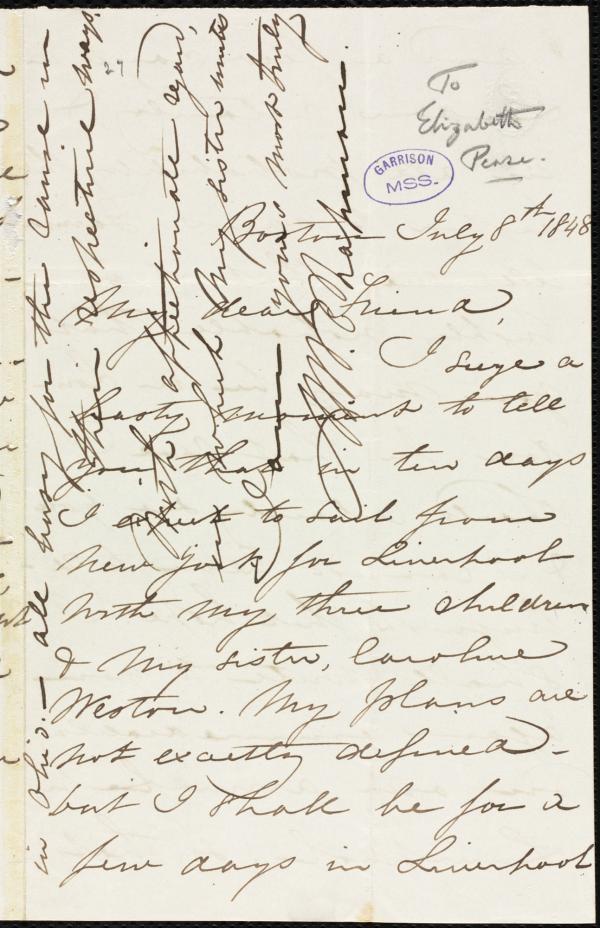 To
Elizabeth
Pease.
GARRISON
MSS.
Boston July 8th 1848
My dear Friend,
I seize a
hasty moment to tell
you, that in ten days
I expect to sail from
New York for Liverpool
with my three children
& my sister, Caroline
Weston. My plans are
not exactly defined -
but I shall be for a
few days in Liverpool
in Ohio. — all busy for the cause in
their respective ways.
With affectionate regard,
in which my sister unites
I am yours most truly
M. W. Chapman.